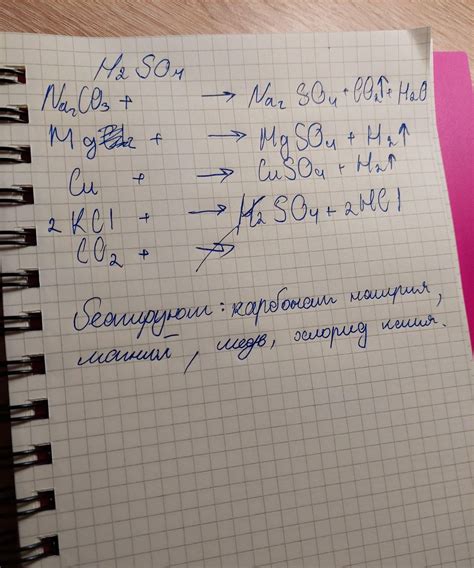 H₂SO₄
Na₂CO₃ + → Na₂SO₄ + CO₂↑ + H₂O
Mg + → MgSO₄ + H₂↑
Cu + → CuSO₄ + H₂↑
2KCl + → K₂SO₄ + 2HCl
CO₂ + ↛
Реагируют: карбонат натрия,
магний, медь, хлорид калия.